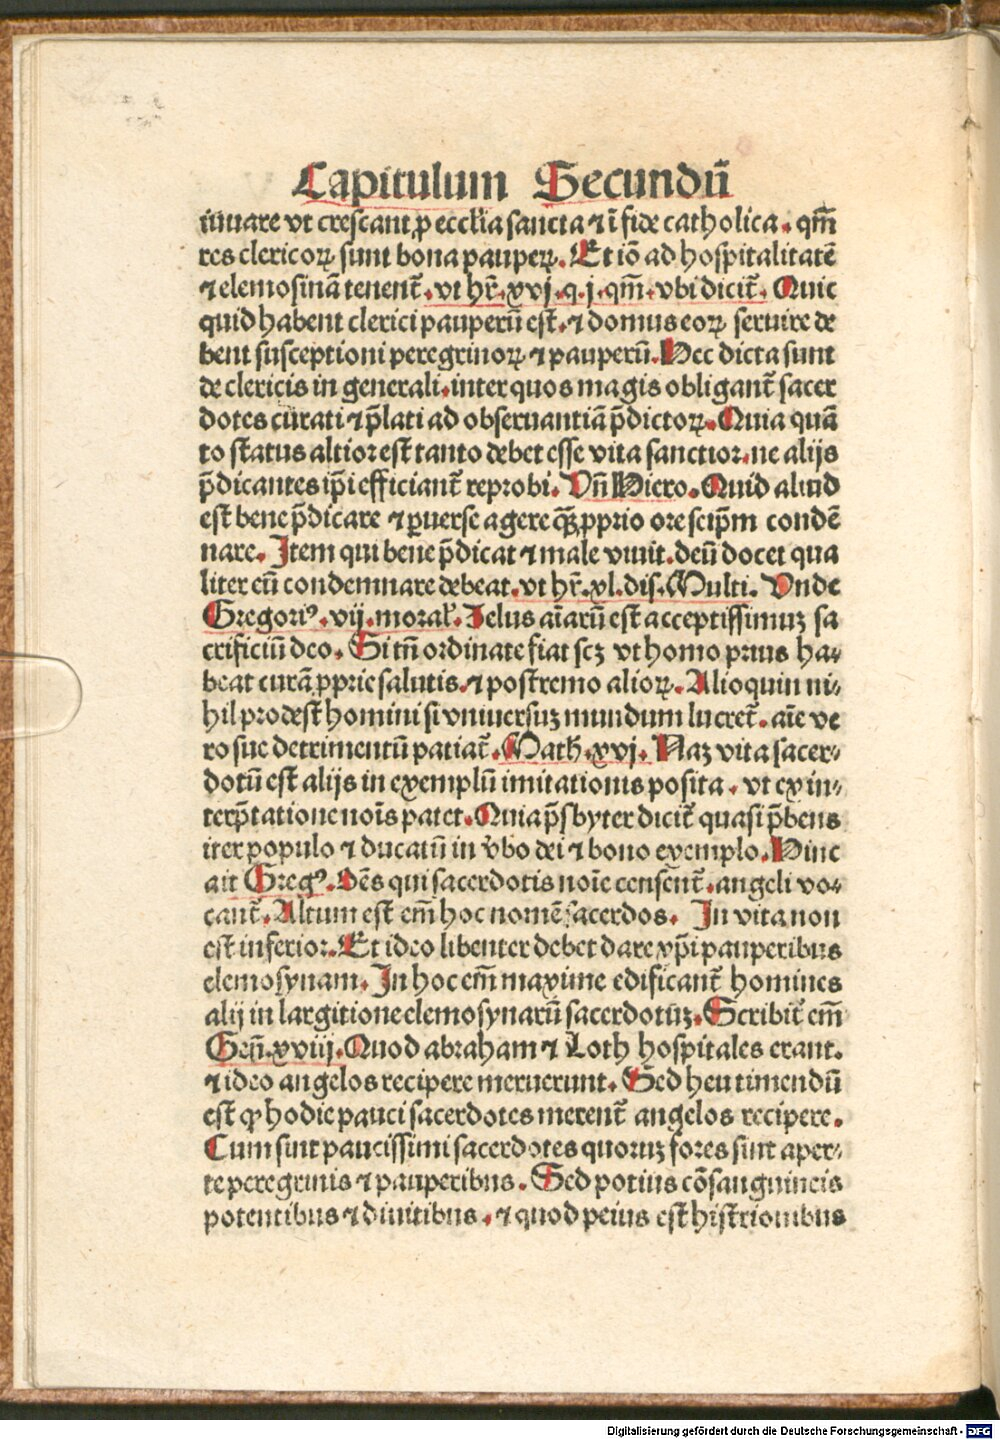 Capitulum Secundū
iuuare vt crescant ꝓ ecclīa sancta ⁊ ī fide catholica. qm̄
res clericoꝝ sunt bona pauperꝝ. Et iō ad hospitalitatē
⁊ elemosinā tenent᷑. vt hr̄. xvj. q. j. qm̄. vbi dicit᷑. Quic
quid habent clerici pauperū est. ⁊ domus eoꝝ seruire de
bent susceptioni peregrinoꝝ ⁊ pauperū. Hec dicta sunt
de clericis in generali. inter quos magis obligant᷑ sacer
dotes curati ⁊ p̄lati ad obseruantiā p̄dictoꝝ. Quia quā
to status altior est tanto debet esse vita sanctior. ne alijs
p̄dicantes ip̄i efficiant᷑ reprobi. Vn̄ Hiero. Quid aliud
est bene p̄dicare ⁊ ꝑuerse agere qꝫ ꝓprio ore seip̄m condē
nare. Item qui bene p̄dicat ⁊ male viuit. deū docet qua
liter eū condemnare debeat. vt hr̄. xl. dis. Multi. Vnde
Gregoriꝰ. vij. moral̕. Zelus aīarū est acceptissimuꝫ sa
crificiū deo. Si tn̄ ordinate fiat scꝫ vt homo prius ha⸗
beat curā ꝓprie salutis. ⁊ postremo alioꝝ. Alioquin ni⸗
hil prodest homini si vniuersuꝫ mundum lucret᷑. aīe ve
ro sue detrimentū patiat᷑. Math. xvj. Naꝫ vita sacer⸗
dotū est alijs in exemplū imitationis posita. vt ex in⸗
terp̄tatione noīs patet. Quia p̄sbyter dicit᷑ quasi p̄bens
iter populo ⁊ ducatū in v̄bo dei ⁊ bono exemplo. Hinc
ait Gregꝰ. Oēs qui sacerdotis noīe censent᷑. angeli vo⸗
cant᷑. Altum est em̄ hoc nomē sacerdos. In vita non
est inferior. Et ideo libenter debet dare xp̄i pauperibus
elemosynam. In hoc em̄ maxime edificant᷑ homines
alij in largitione elemosynarū sacerdotuꝫ. Scribit᷑ em̄
Gen̄. xviij. Quod abraham ⁊ Loth hospitales erant.
⁊ ideo angelos recipere meruerunt. Sed heu timendū
est ꝙ hodie pauci sacerdotes merent᷑ angelos recipere.
Cum sint paucissimi sacerdotes quoruꝫ fores sint aper⸗
te peregrinis ⁊ pauperibus. Sed potius cōsanguineis
potentibus ⁊ diuitibus. ⁊ quod peius est histrionibus
Digitalisierung gefördert durch die Deutsche Forschungsgemeinschaft - DFG